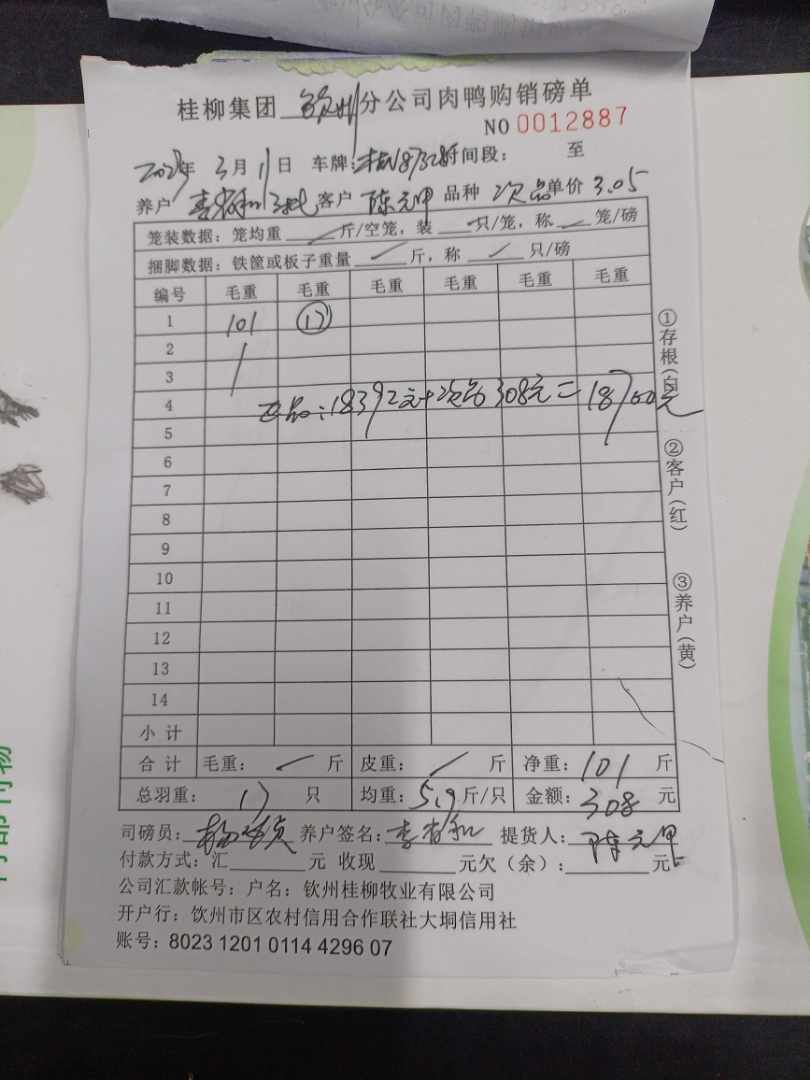 桂柳集团 钦州 分公司肉鸭购销磅单
NO 0012887
年 3月11日 车牌: 时间段: 至
养户 李 客户 陈元甲 品种 次品 单价 3.05
笼装数据: 笼均重 / 斤/空笼, 装 / 只/笼, 称 / 笼/磅
捆脚数据: 铁筐或板子重量 / 斤, 称 / 只/磅
编号 毛重 毛重 毛重 毛重 毛重 毛重
1 101 ⑰
2 /
3
4 正品:18392元+次品308元=18700元
5
6
7
8
9
10
11
12
13
14
小计
合计 毛重: / 斤 皮重: / 斤 净重: 101 斤
总羽重: 17 只 均重: 5.9 斤/只 金额: 308 元
司磅员: 杨 养户签名: 李 提货人: 陈元甲
付款方式: 汇 元 收现 元欠(余): 元
公司汇款帐号: 户名: 钦州桂柳牧业有限公司
开户行: 饮州市区农村信用合作联社大垌信用社
账号: 8023 1201 0114 4296 07
①存根(白)
②客户(红)
③养户(黄)